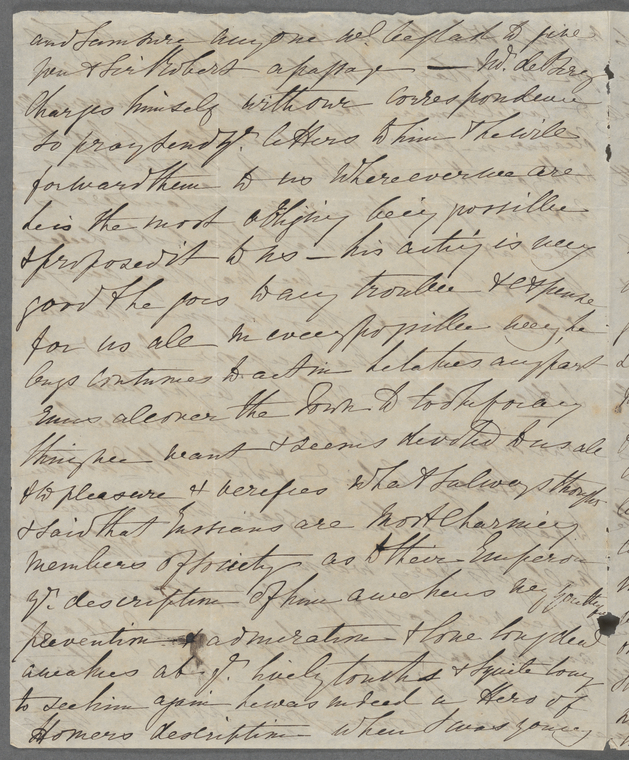 and I am sure any one wd. be glad to give
you & Sir Robert a passage — Mr. de
Charges himself with our correspondence
so pray send yr. letters to him & he will
forward them to us where ever we are
he is the most obliging being possible
& proposed it to us — his acting is very
good & he goes to any trouble & expense
for us all in every possible way, he
buys costumes to act in he takes any part
runs all over the Town to look for any
thing we want & seems devoted to us all
& to pleasure & verifies what I always thought
& said that Russians are most charming
members of society as to their Emperor
yr. description of him awakens my
prevention admiration & love long dead
awakes at yr. lively touches & I quite long
to see him again he was indeed a Hero of
Homers description when I was young